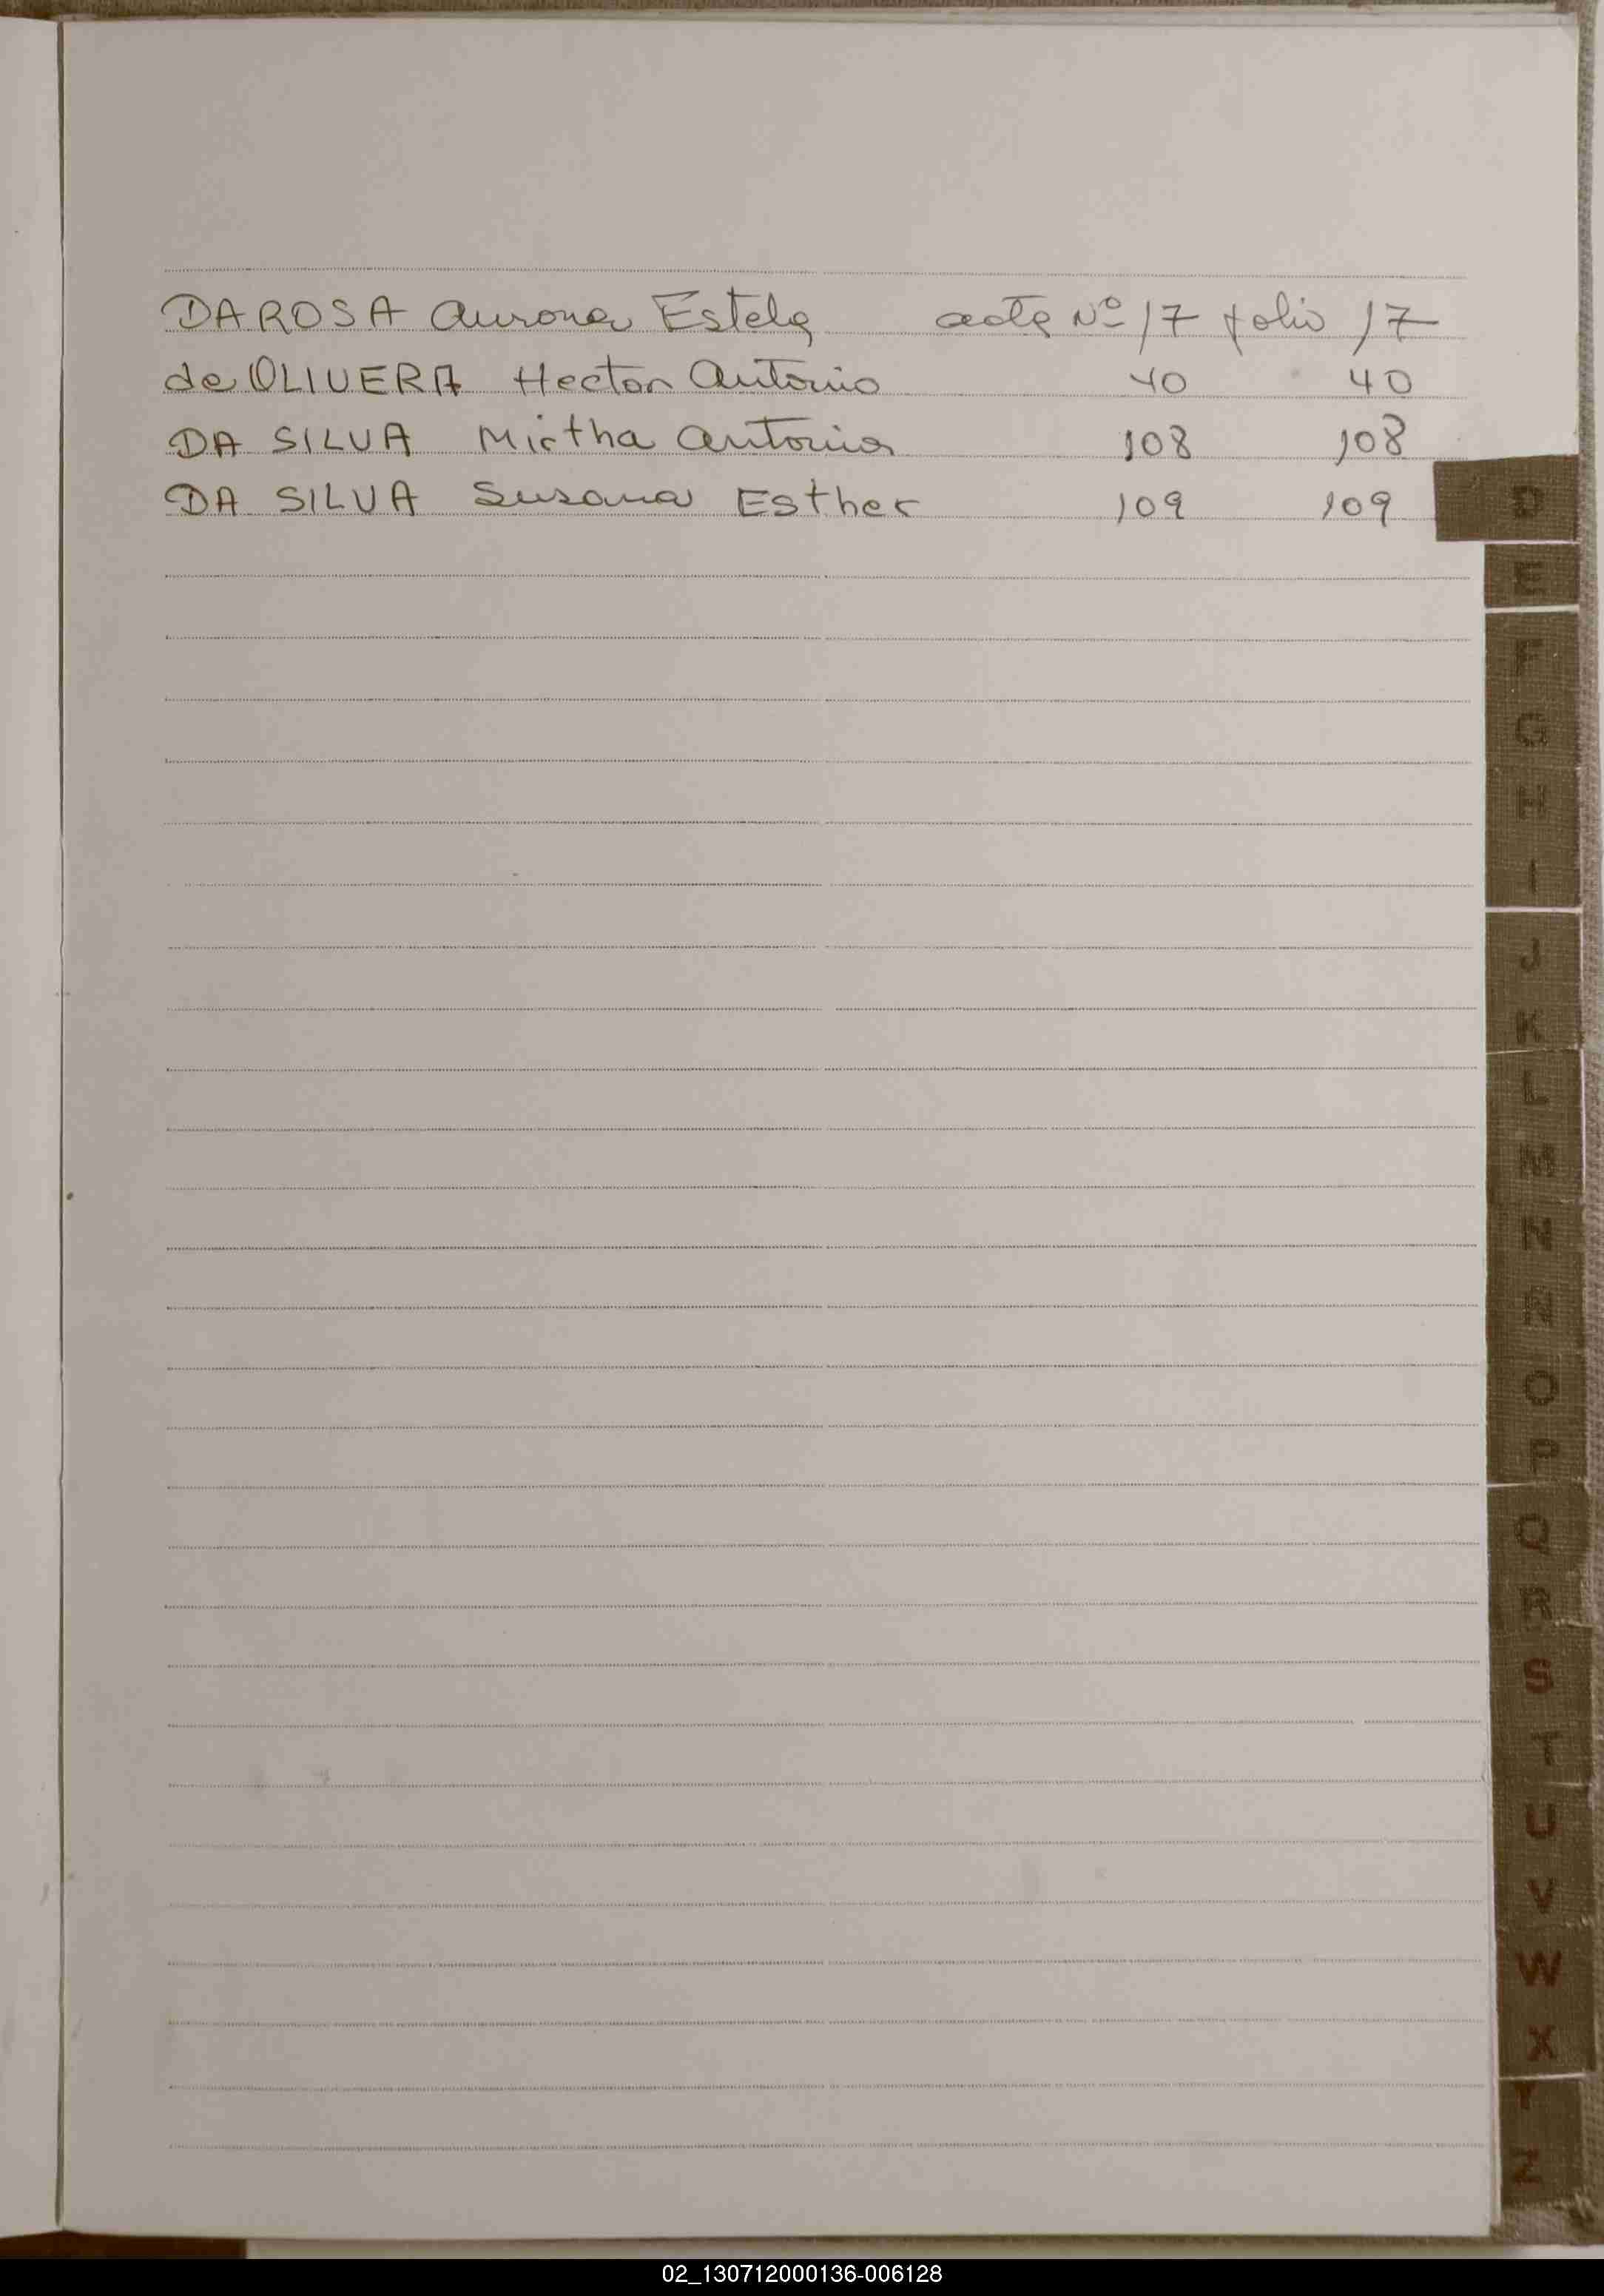 DA ROSA Aurora Estela acta Nº 17 folio 17
de OLIVERA Hector Antonio 40 40
DA SILVA Mirtha Antonia 108 108
DA SILVA Susana Esther 109 109
D
E
F
G
H
I
J
K
L
M
N
Ñ
O
P
Q
R
S
T
U
V
W
X
Y
Z
02_130712000136-006128